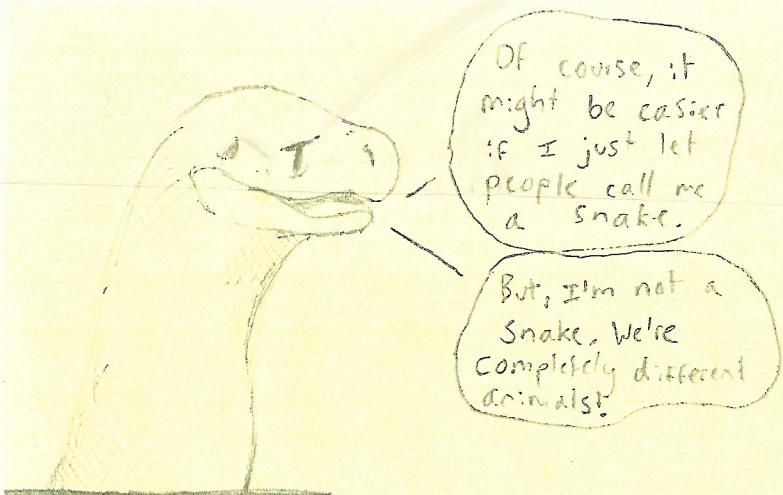 Of course, it
might be easier
if I just let
people call me
a snake.
But, I'm not a
snake. We're
completely different
animals!